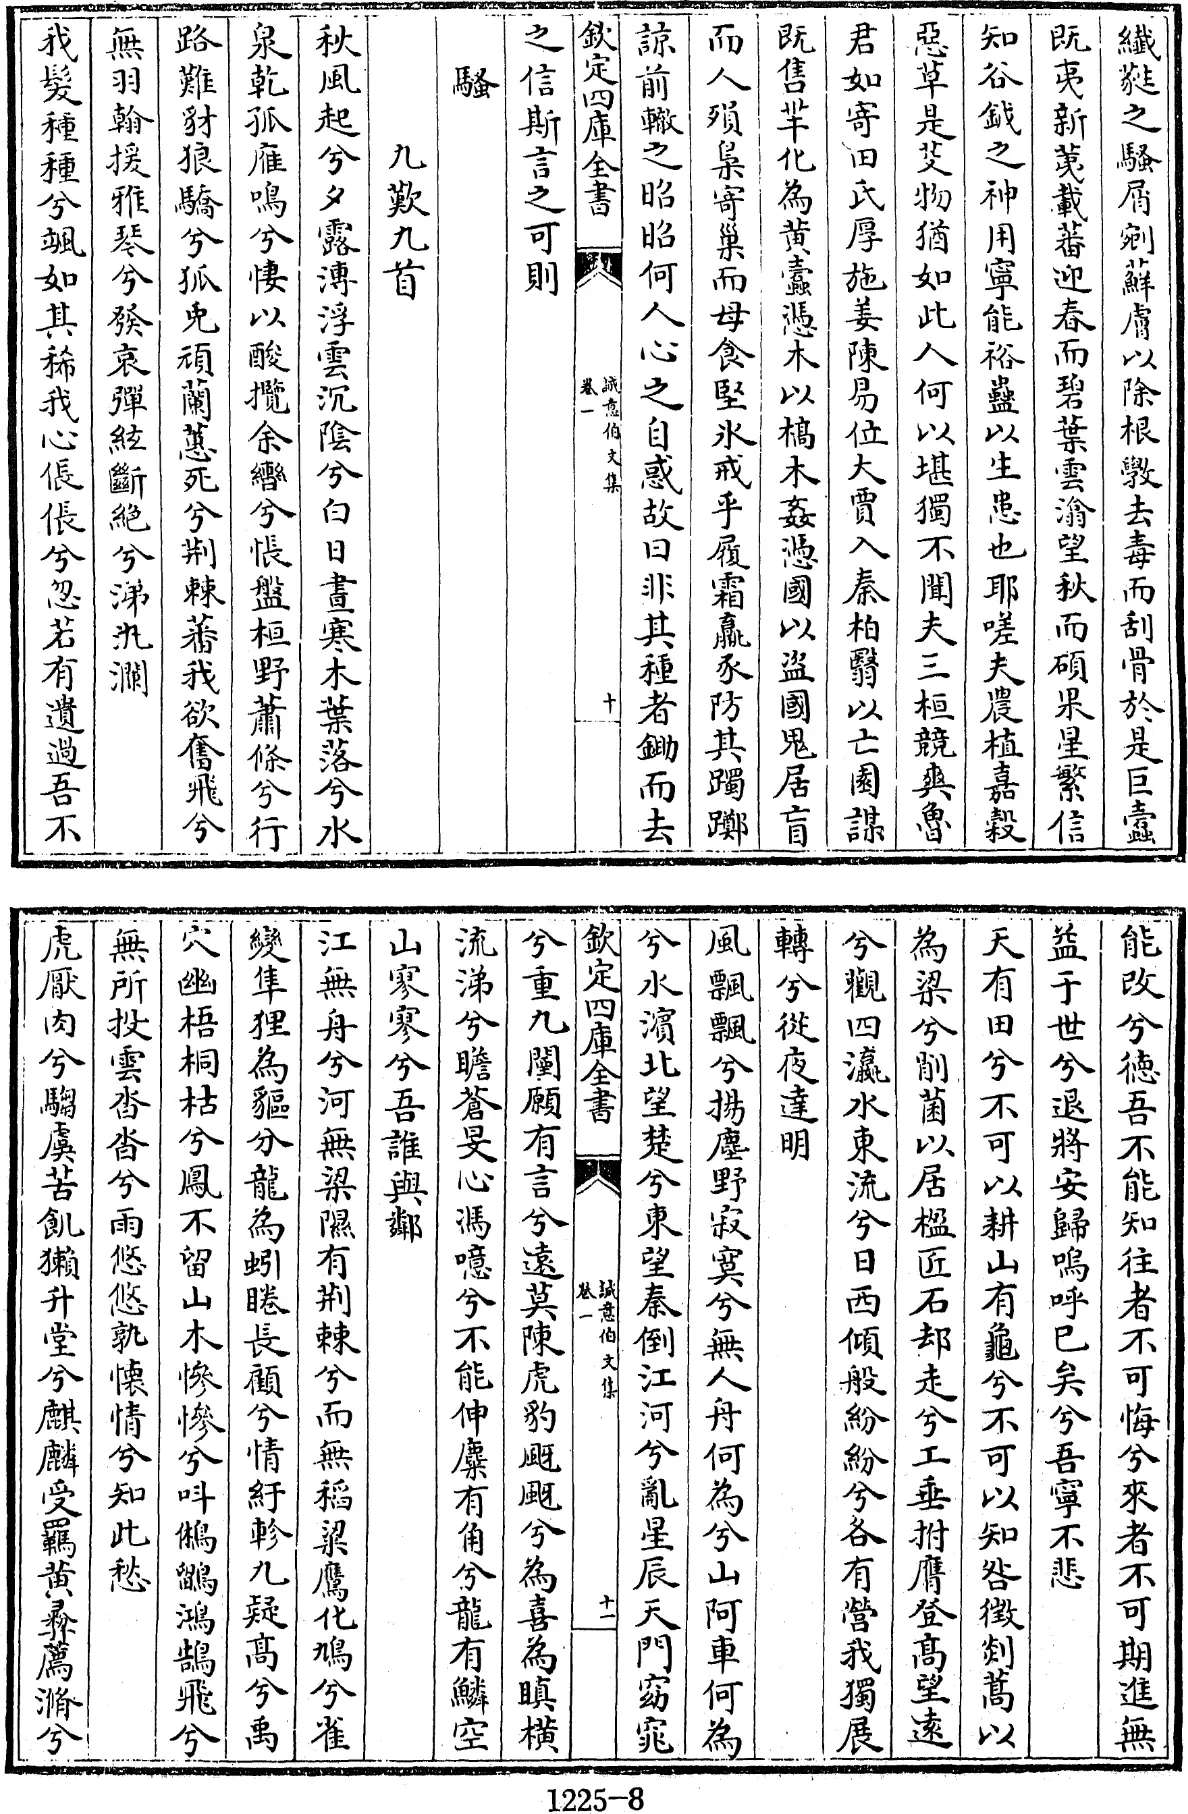 纎蕤之騷屑剜蘚膚以除根斆去毒而刮骨於是巨蠹
既夷新荑載蕃迎春而碧葉雲滃望秋而碩果星繁信
知谷鉞之神用寧能裕蠱以生患也耶嗟夫農植嘉穀
惡草是芟物猶如此人何以堪獨不聞夫三桓競爽魯
君如寄田氏厚施姜陳易位大賈入秦柏翳以亡園謀
既售羋化為黃蠹憑木以槁木姦憑國以盜國鬼居肓
而人殞梟寄巢而母食堅氷戒乎履霜羸豕防其躅躑
諒前轍之昭昭何人心之自惑故曰非其種者鋤而去
欽定四庫全書
誠意伯文集
卷一
十
之信斯言之可則
騷
九歎九首
秋風起兮夕露漙浮雲沉陰兮白日晝寒木葉落兮水
泉乾孤雁鳴兮悽以酸攬余轡兮悵盤桓野蕭條兮行
路難豺狼驕兮狐兎頑蘭蕙死兮荆棘蕃我欲奮飛兮
無羽翰援雅琴兮發哀彈絃斷絶兮涕汍瀾
我髮種種兮颯如其稀我心倀倀兮忽若有遺過吾不
能改兮德吾不能知往者不可悔兮來者不可期進無
益于世兮退將安歸嗚呼已矣兮吾寧不悲
天有田兮不可以耕山有龜兮不可以知咎徵剡蒿以
為梁兮削菌以居楹匠石却走兮工垂拊膺登高望遠
兮觀四瀛水東流兮日西傾般紛紛兮各有營我獨展
轉兮從夜達明
風飄飄兮揚塵野寂寞兮無人舟何為兮山阿車何為
兮水濱北望楚兮東望秦倒江河兮亂星辰天門窈窕
欽定四庫全書
誠意伯文集
卷一
十一
兮重九閽願有言兮遠莫陳虎豹𧇾𧇾兮為喜為瞋橫
流涕兮瞻蒼旻心馮噫兮不能伸麋有角兮龍有鱗空
山寥寥兮吾誰與鄰
江無舟兮河無梁隰有荆棘兮而無稻粱鷹化鳩兮雀
變隼狸為貙兮龍為蚓睠長顧兮情紆軫九疑高兮禹
穴幽梧桐枯兮鳳不留山木慘慘兮叫鵂鶹鴻鵠飛兮
無所投雲沓沓兮雨悠悠孰懷情兮知此愁
虎厭肉兮騶虞苦飢獺升堂兮麒麟受羈黃彞薦滫兮
1225-8